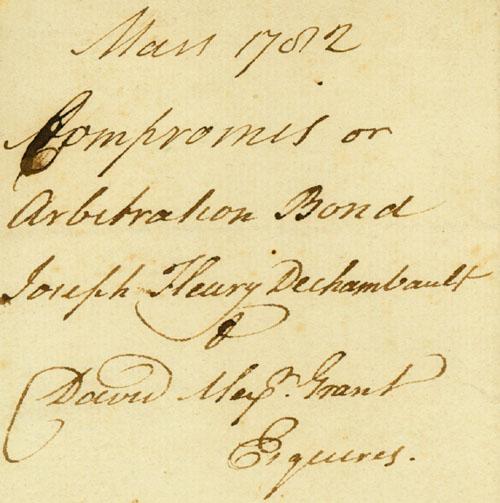 Mars 1782
Compromis or
Arbitration Bond
Joseph Fleury Dechambault
&
David Alexr. Grant
Esquires.